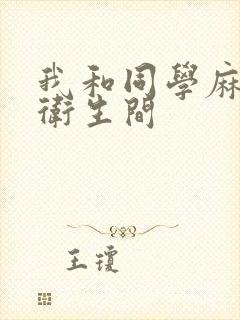 我和同學麻
衛生間
王瓊